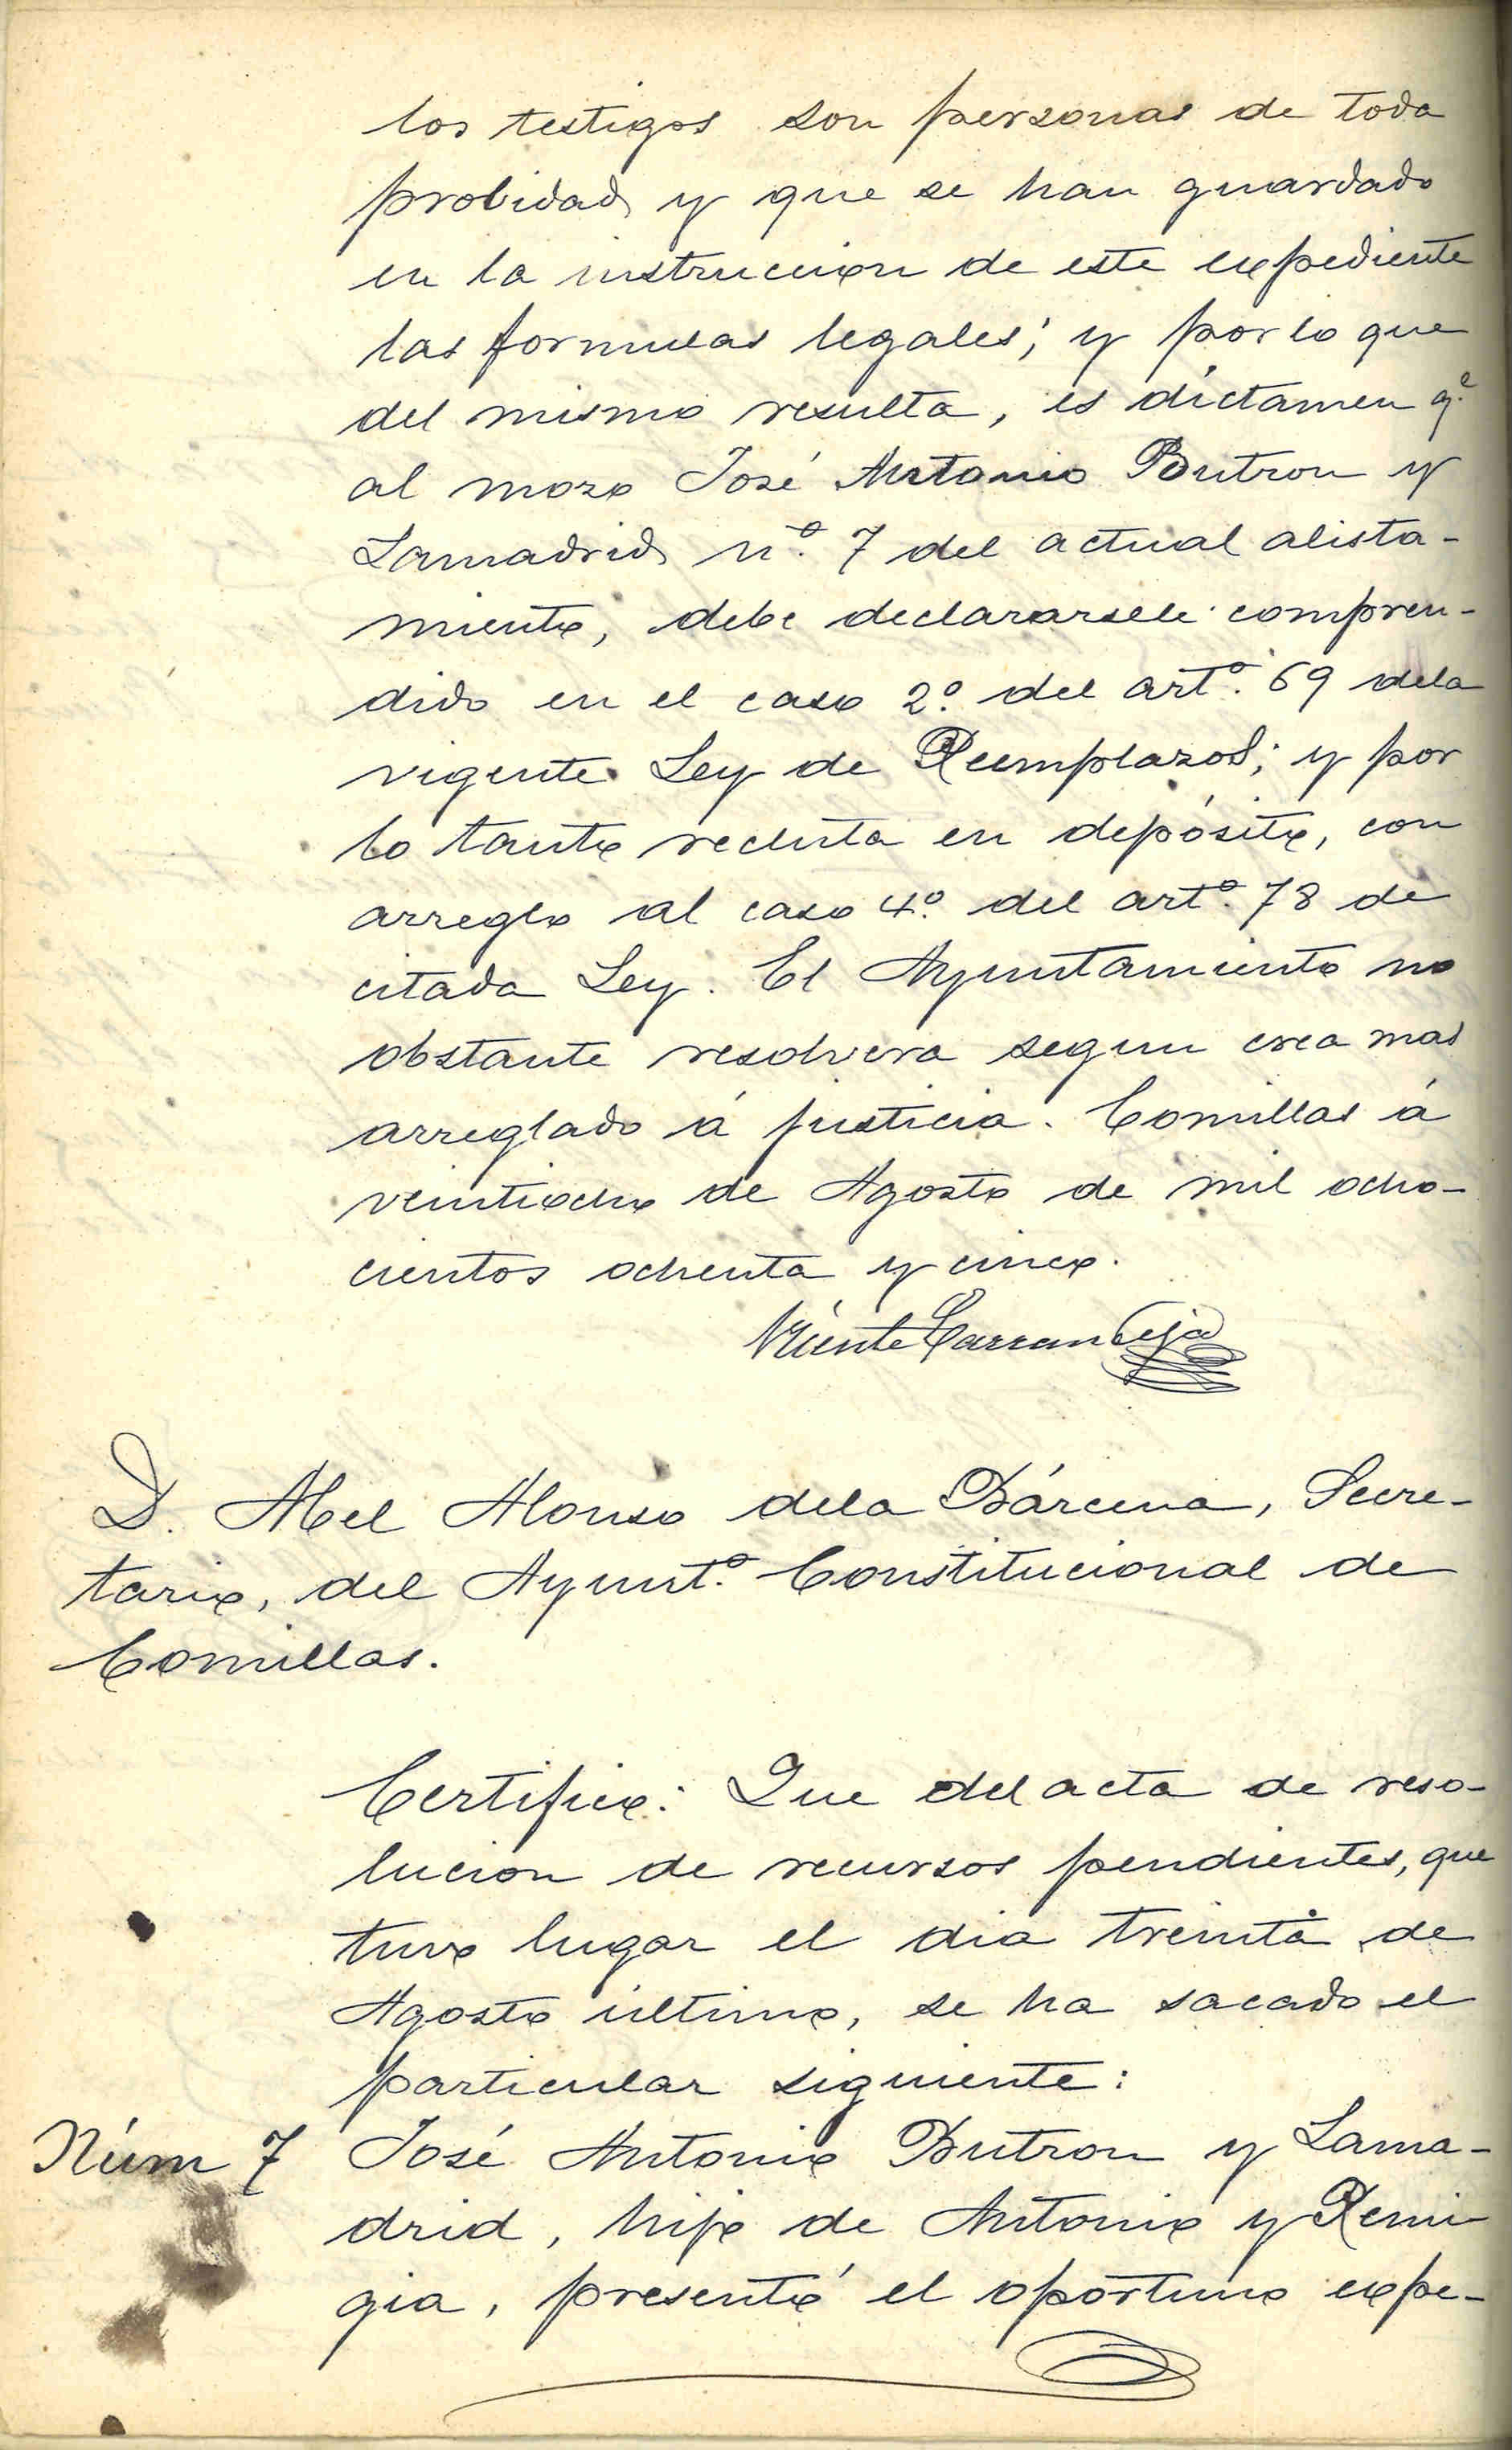 los testigos son personas de toda
probidad y que se han guardado
en la instruccion de este expediente
las formulas legales; y por lo que
del mismo resulta, es díctamen q.e
al mozo José Antonio Butron y
Lamadrid n.º 7 del actual alista-
miento, debe declararsele compren-
dido en el caso 2.º del art.º 69 dela
vigente Ley de Reemplazos; y por
lo tanto recluta en depósito, con
arreglo al caso 4.º del art.º 78 de
citada Ley. El Ayuntamiento no
obstante resolvera segun crea mas
arreglado á justicia. Comillas á
veintiocho de Agosto de mil ocho-
cientos ochenta y cinco.
Vicente Carranceja
D. Abel Alonso dela Bárcena, Secre-
tario, del Ayunt.º Constitucional de
Comillas.
Certifico: Que del acta de reso-
lucion de recursos pendientes, que
tuvo lugar el dia treinta de
Agosto último, se ha sacado el
particular siguiente:
Núm 7 José Antonio Butron y Lama-
drid, hijo de Antonio y Remi-
gia, presentó el oportuno expe-